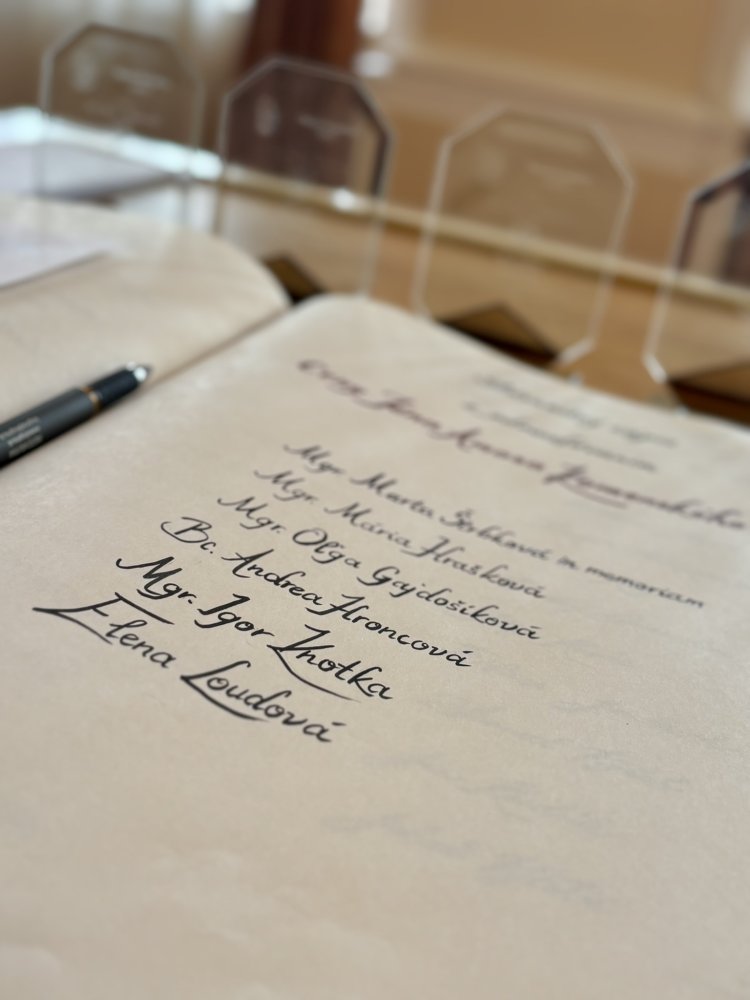 Ceny Jána Amosa Komenského
Mgr. Marta in memoriam
Mgr. Mária Hrašková
Mgr. Oľga Gajdošíková
Bc. Andrea Hroncová
Mgr. Igor
Elena Loudová